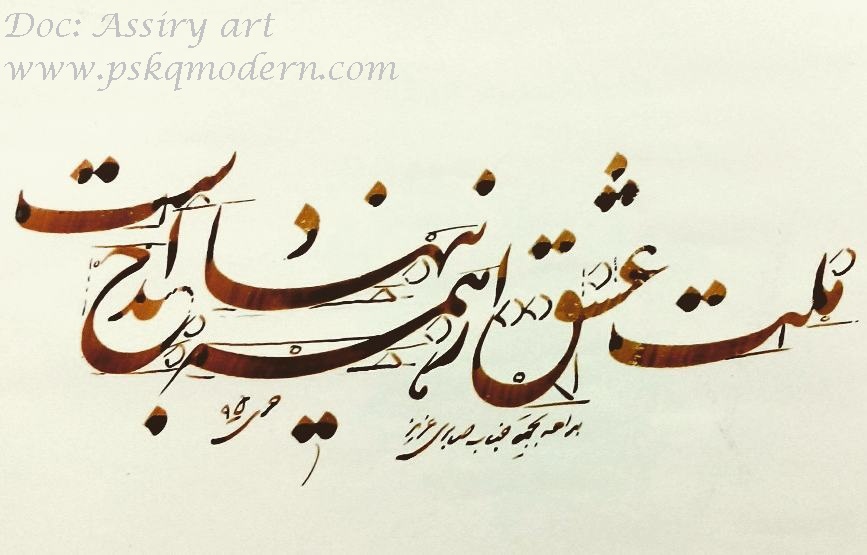 Doc: Assiry art
www.pskqmodern.com
ملت عشق از همه دینها جداست
بداهه بجهت جناب عزیز
۹۵